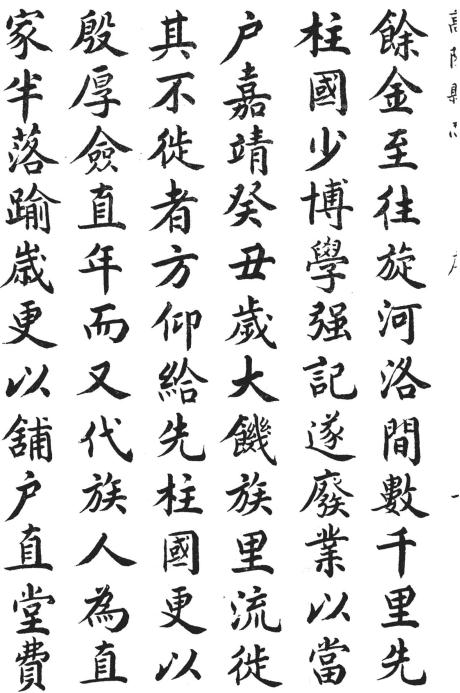 餘金至往旋河洛間數千里先
柱國少博學强記遂廢業以當
户嘉靖癸丑歲大饑族里流徙
其不徙者方仰給先柱國更以
殷厚僉直年而又代族人為直
家半落踰歲更以舖户直堂費